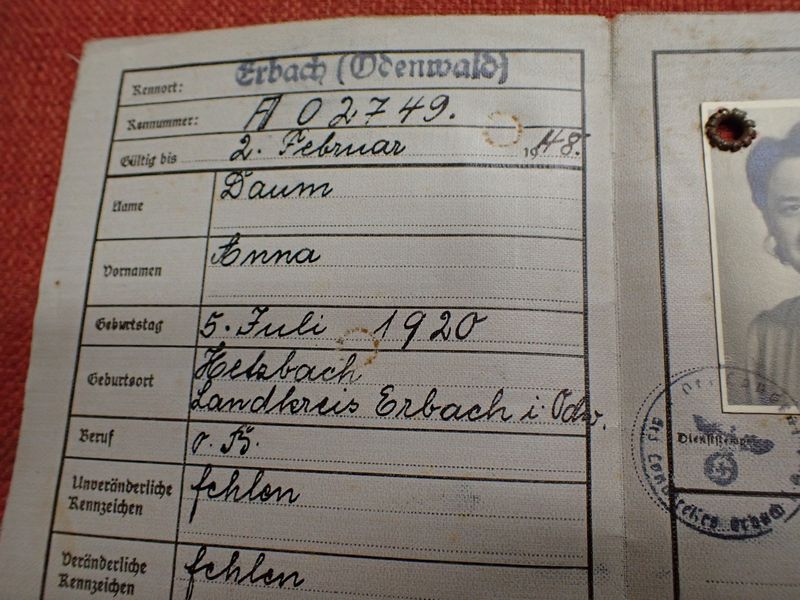 Kennort: Erbach (Odenwald)
Kennummer: A 02749.
Gültig bis 2. Februar 1948.
Name Daum
Vornamen Anna
Geburtstag 5. Juli 1920
Geburtsort Hetzbach
Landkreis Erbach i. Odw.
Beruf o. B.
Unveränderliche
Kennzeichen fehlen
Veränderliche
Kennzeichen fehlen
Der Landrat
Dienststempel
des Landkreises Erbach